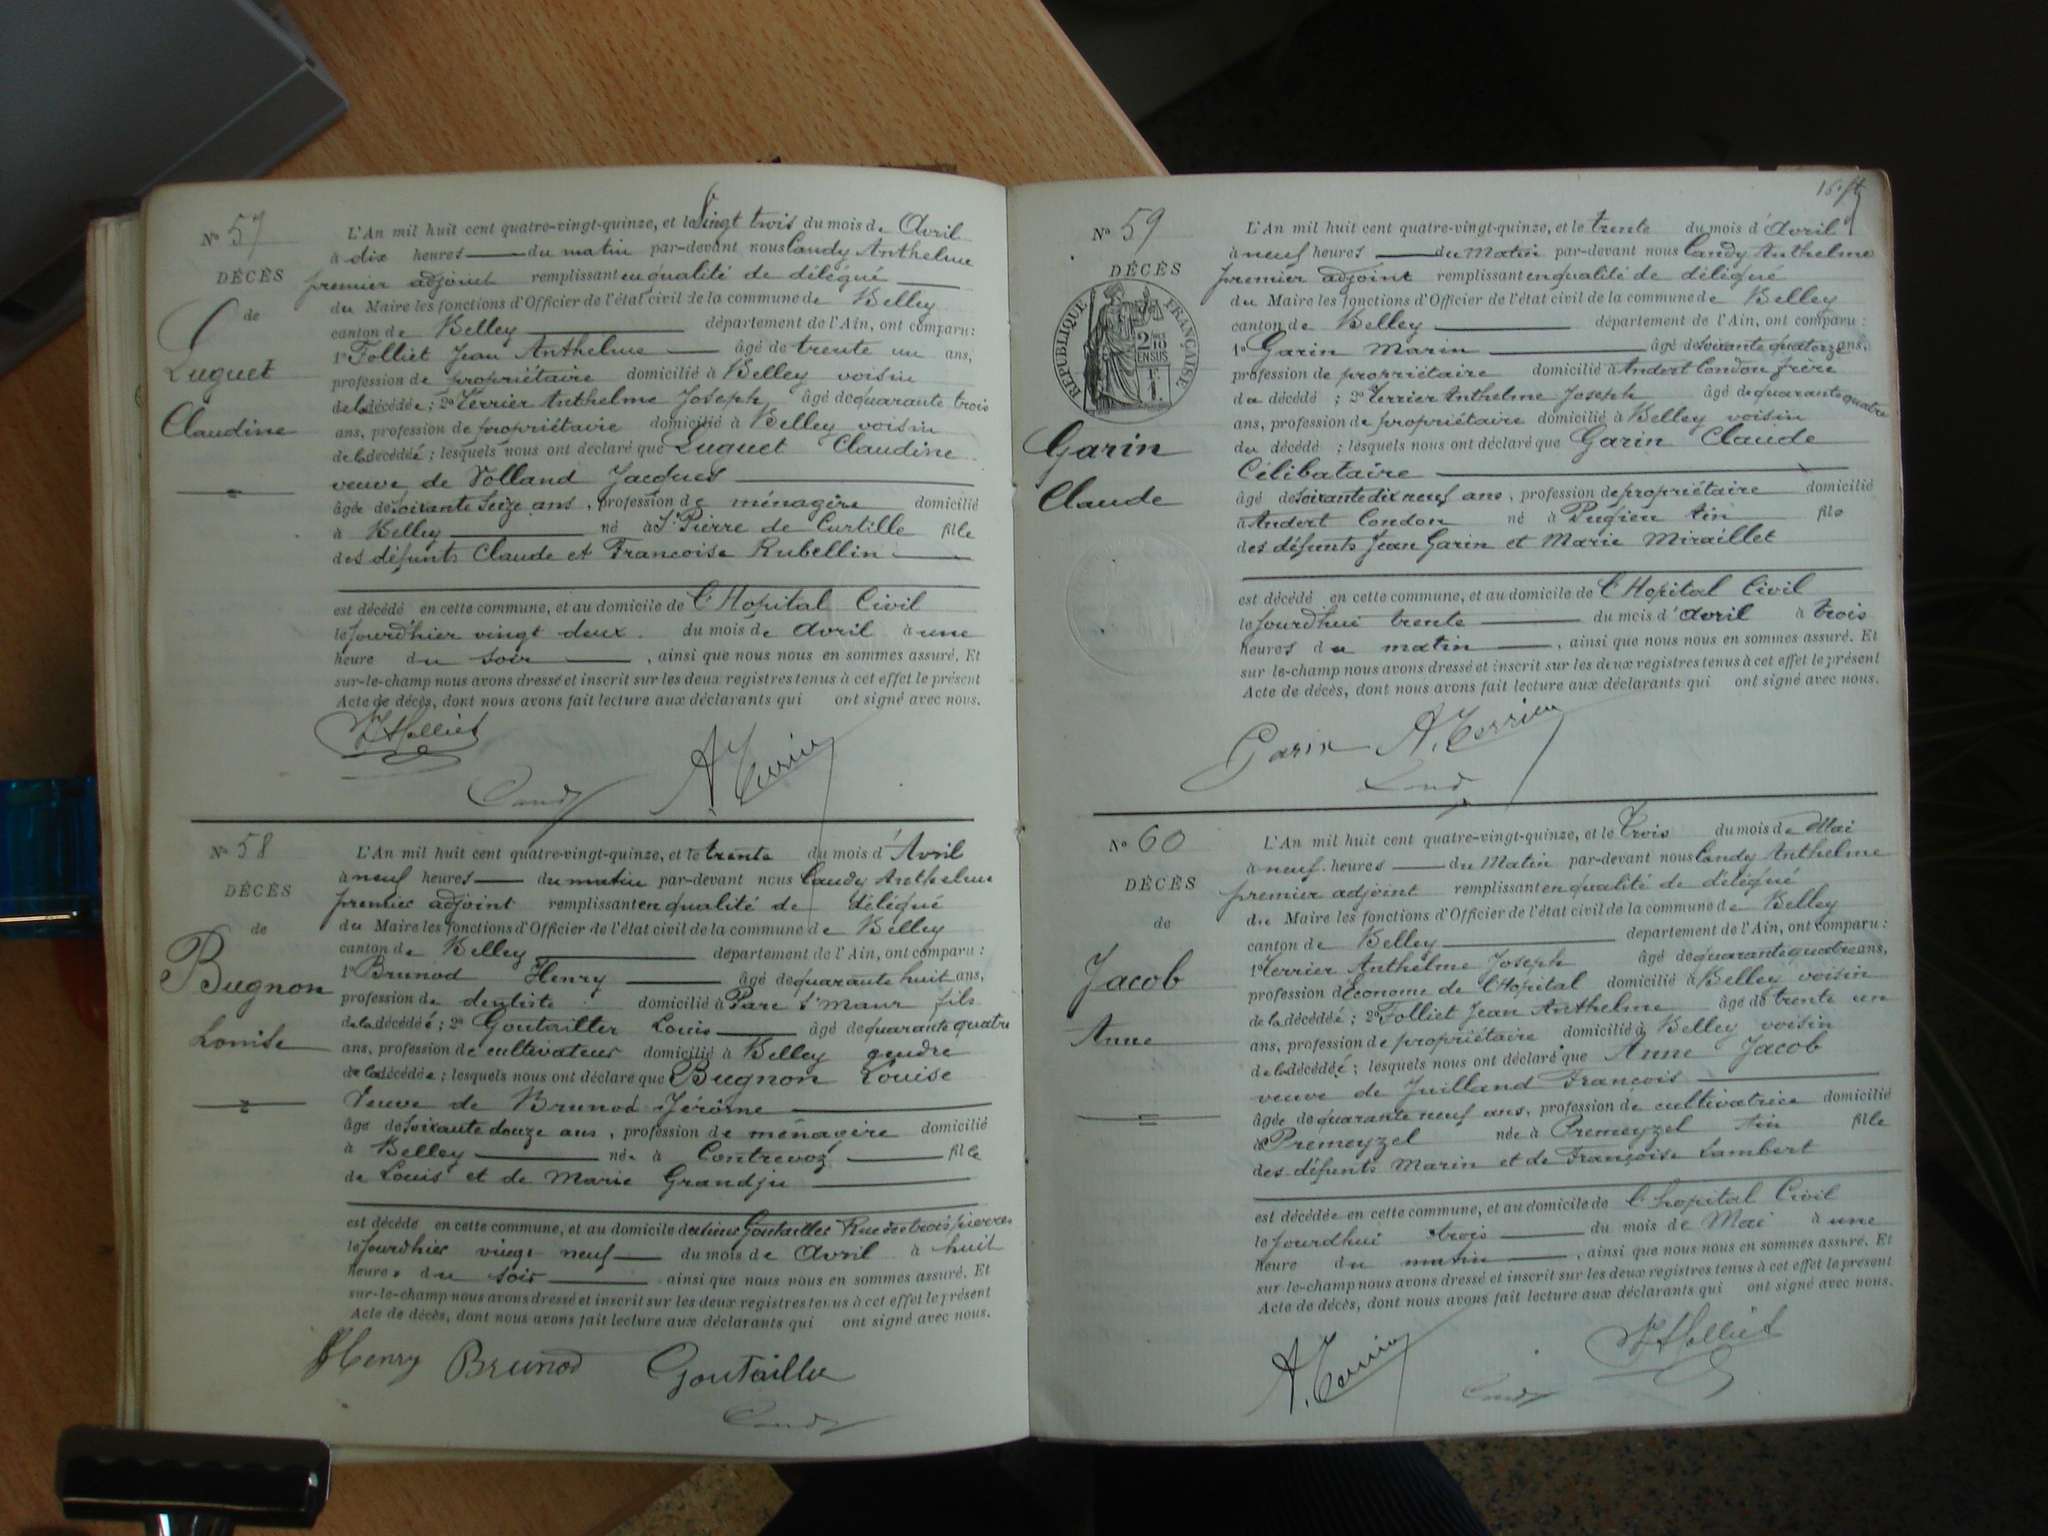 N° 57
DÉCÈS
de
Luguet
Claudine
L'An mil huit cent quatre-vingt-quinze, et le Vingt trois du mois de Avril
à dix heures du matin par-devant nous Candy Anthelme
premier adjoint remplissant en qualité de délégué
du Maire les fonctions d'Officier de l'état civil de la commune de Belley
canton de Belley département de l'Ain, ont comparu :
1° Folliet Jean Anthelme âgé de trente un ans,
profession de propriétaire domicilié à Belley voisin
de la décédée ; 2° Terrier Anthelme Joseph âgé de quarante trois
ans, profession de propriétaire domicilié à Belley voisin
de la décédée ; lesquels nous ont déclaré que Luguet Claudine
veuve de Volland Jacques
âgée de soixante seize ans, profession de ménagère domicilié
à Belley né à St Pierre de Curtille fille
des défunts Claude et Francoise Rubellin
est décédé en cette commune, et au domicile de L'Hopital Civil
le jourd'hier vingt deux du mois de Avril à une
heure du soir, ainsi que nous nous en sommes assuré. Et
sur-le-champ nous avons dressé et inscrit sur les deux registres tenus à cet effet le présent
Acte de décès, dont nous avons fait lecture aux déclarants qui ont signé avec nous.
Folliet
Candy A. Terrier
N° 58
DÉCÈS
de
Bugnon
Louise
L'An mil huit cent quatre-vingt-quinze, et le trente du mois d'Avril
à neuf heures du matin par-devant nous Candy Anthelme
premier adjoint remplissant en qualité de délégué
du Maire les fonctions d'Officier de l'état civil de la commune de Belley
canton de Belley département de l'Ain, ont comparu :
1° Brunod Henry âgé de quarante huit ans,
profession de dentiste domicilié à Parc St Maur fils
de la décédée ; 2° Goutailler Louis âgé de quarante quatre
ans, profession de cultivateur domicilié à Belley gendre
de la décédée ; lesquels nous ont déclaré que Bugnon Louise
Veuve de Brunod Jérôme
âgé de soixante douze ans, profession de ménagère domicilié
à Belley née à Contrevoz fille
de Louis et de Marie Grandju
est décédé en cette commune, et au domicile de Goutailler Rue des trois pierres
le jourdhier vingt neuf du mois de Avril à huit
heures du soir, ainsi que nous nous en sommes assuré. Et
sur-le-champ nous avons dressé et inscrit sur les deux registres tenus à cet effet le présent
Acte de décès, dont nous avons fait lecture aux déclarants qui ont signé avec nous.
Henry Brunod Goutailler
Candy
N° 59
DÉCÈS
RÉPUBLIQUE FRANÇAISE
2/10 EN SUS
Garin
Claude
L'An mil huit cent quatre-vingt-quinze, et le trente du mois d'avril
à neuf heures du Matin par-devant nous Candy Anthelme
premier adjoint remplissant en qualité de délégué
du Maire les fonctions d'Officier de l'état civil de la commune de Belley
canton de Belley département de l'Ain, ont comparu :
1° Garin Marin âgé de soixante quatorze ans,
profession de propriétaire domicilié à Andert Condon frère
du décédé ; 2° Terrier Anthelme Joseph âgé de quarante quatre
ans, profession de propriétaire domicilié à Belley voisin
du décédé ; lesquels nous ont déclaré que Garin Claude
Célibataire
âgé de soixante dix neuf ans, profession de propriétaire domicilié
à Andert Condon né à Pugieu Ain fils
des défunts Jean Garin et Marie Miraillet
est décédé en cette commune, et au domicile de L'Hopital Civil
le jourdhui trente du mois d'avril à trois
heures du matin, ainsi que nous nous en sommes assuré. Et
sur-le-champ nous avons dressé et inscrit sur les deux registres tenus à cet effet le présent
Acte de décès, dont nous avons fait lecture aux déclarants qui ont signé avec nous.
Garin A. Terrier
Candy
N° 60
DÉCÈS
de
Jacob
Anne
L'An mil huit cent quatre-vingt-quinze, et le Trois du mois de Mai
à neuf heures du Matin par-devant nous Candy Anthelme
premier adjoint remplissant en qualité de délégué
du Maire les fonctions d'Officier de l'état civil de la commune de Belley
canton de Belley département de l'Ain, ont comparu :
1° Terrier Anthelme Joseph âgé de quarante quatre ans,
profession d'Econome de L'Hopital domicilié à Belley voisin
de la décédée ; 2° Folliet Jean Anthelme âgé de trente un
ans, profession de propriétaire domicilié à Belley voisin
de la décédée ; lesquels nous ont déclaré que Anne Jacob
veuve de Juilland François
âgée de quarante neuf ans, profession de cultivatrice domicilié
à Premeyzel née à Premeyzel Ain fille
des défunts Marin et de Françoise Lambert
est décédée en cette commune, et au domicile de L'hopital Civil
le jourdhui trois du mois de Mai à une
heure du matin, ainsi que nous nous en sommes assuré. Et
sur-le-champ nous avons dressé et inscrit sur les deux registres tenus à cet effet le présent
Acte de décès, dont nous avons fait lecture aux déclarants qui ont signé avec nous.
A. Terrier Folliet
Candy